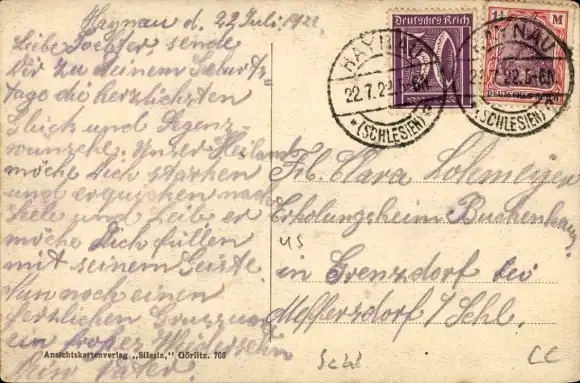 Haynau d. 22 Juli 1922
Liebe Tochter, sende
Dir zu deinem Geburts
tage die herzlichsten
Glück und Segens
wünsche. Unser Heiland
möche Dich stärken
und erquicken nach
Seele und Leib er
möche Dich füllen
mit seinem Geiste.
Nun noch einen
herzlichen Gruss und
ein frohes Wiedersehn
Dein Vater.
Ansichtskartenverlag „Silesia," Görlitz. 708
Deutsches Reich
70
1¼ M
HAYNAU
22.7.22
* (SCHLESIEN) *
HAYNAU
22.7.22.5-6N
* (SCHLESIEN) *
Frl. Clara
Erholungsheim Buchenhaus
in Grenzdorf bei
Meffersdorf / Schl.